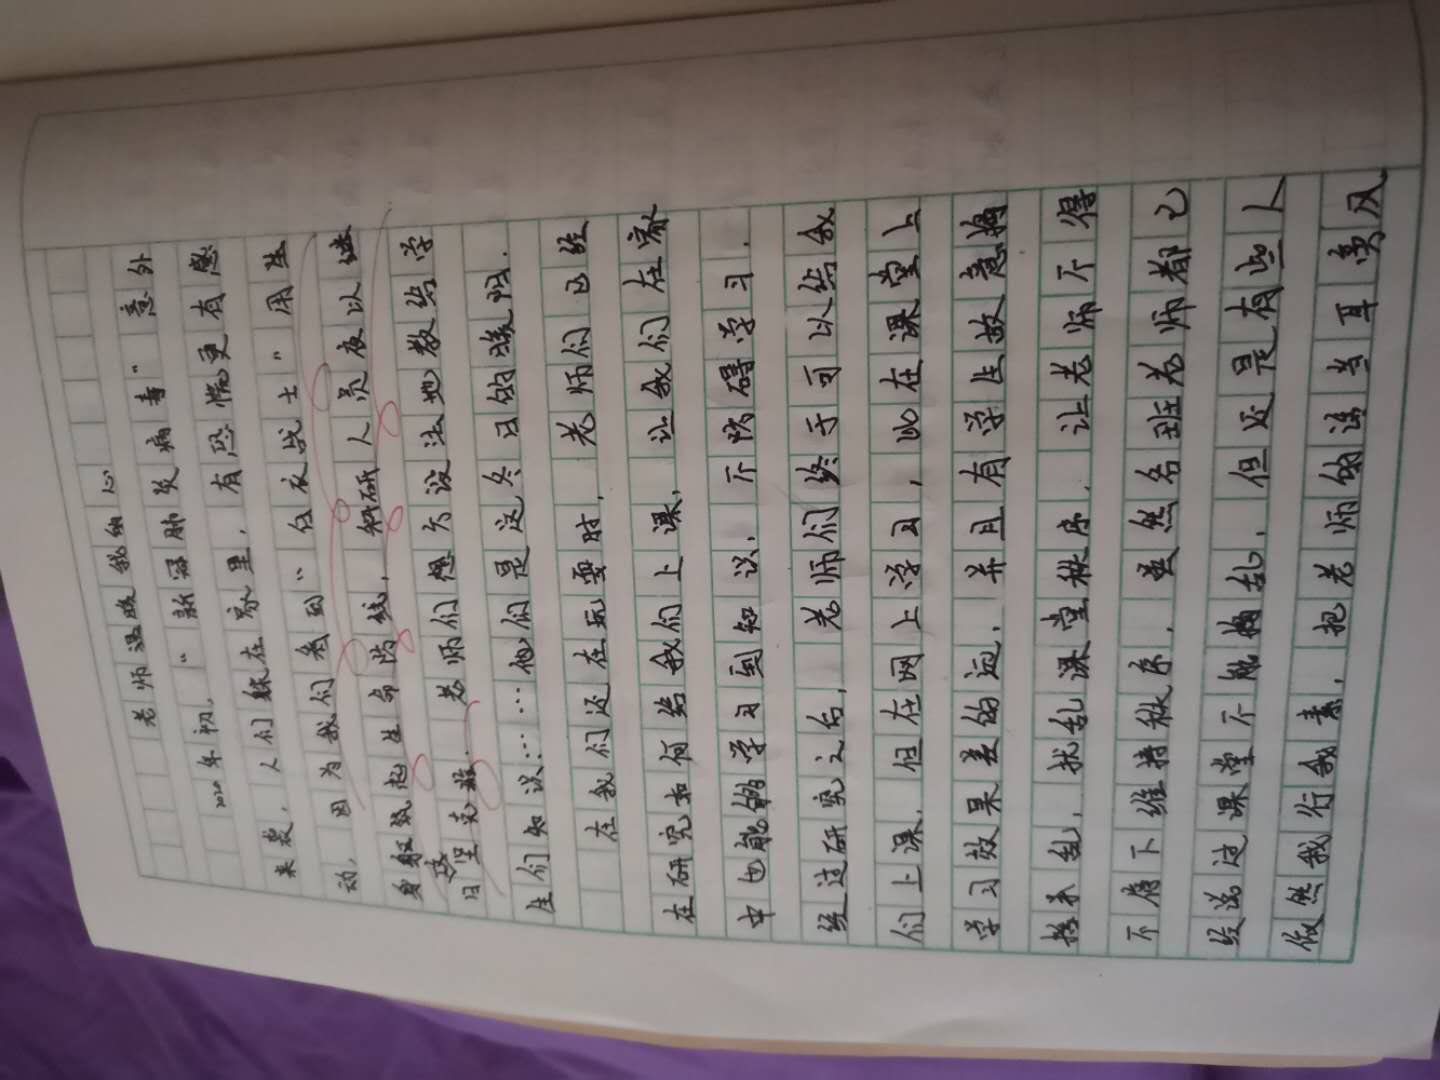 老师温暖我的心
2020年初，“新冠肺炎病毒”意外
来袭，人们躲在家里，有恐慌更有感
动，因为我们看到“白衣战士”用生
身躯筑起生命防线，科研人员夜以继
日坚克难。老师们想方设法地教给学
生们知识……他们是这冬日的暖阳。
在我们还在玩耍时，老师们已经
在研究如何给我们上课，让我们在家
中也能够学习到知识，不妨碍学习。
经过研究之后，老师们终于可以给我
们上课，但在网上学习，比在课堂上
学习效果差的远，并且有学生故意捣
乱，扰乱课堂秩序，让老师不得
不停下维持秩序，虽然各班老师都已
经说过课堂不能捣乱，但还是有些人
依然我行我素，把老师的话当耳旁风